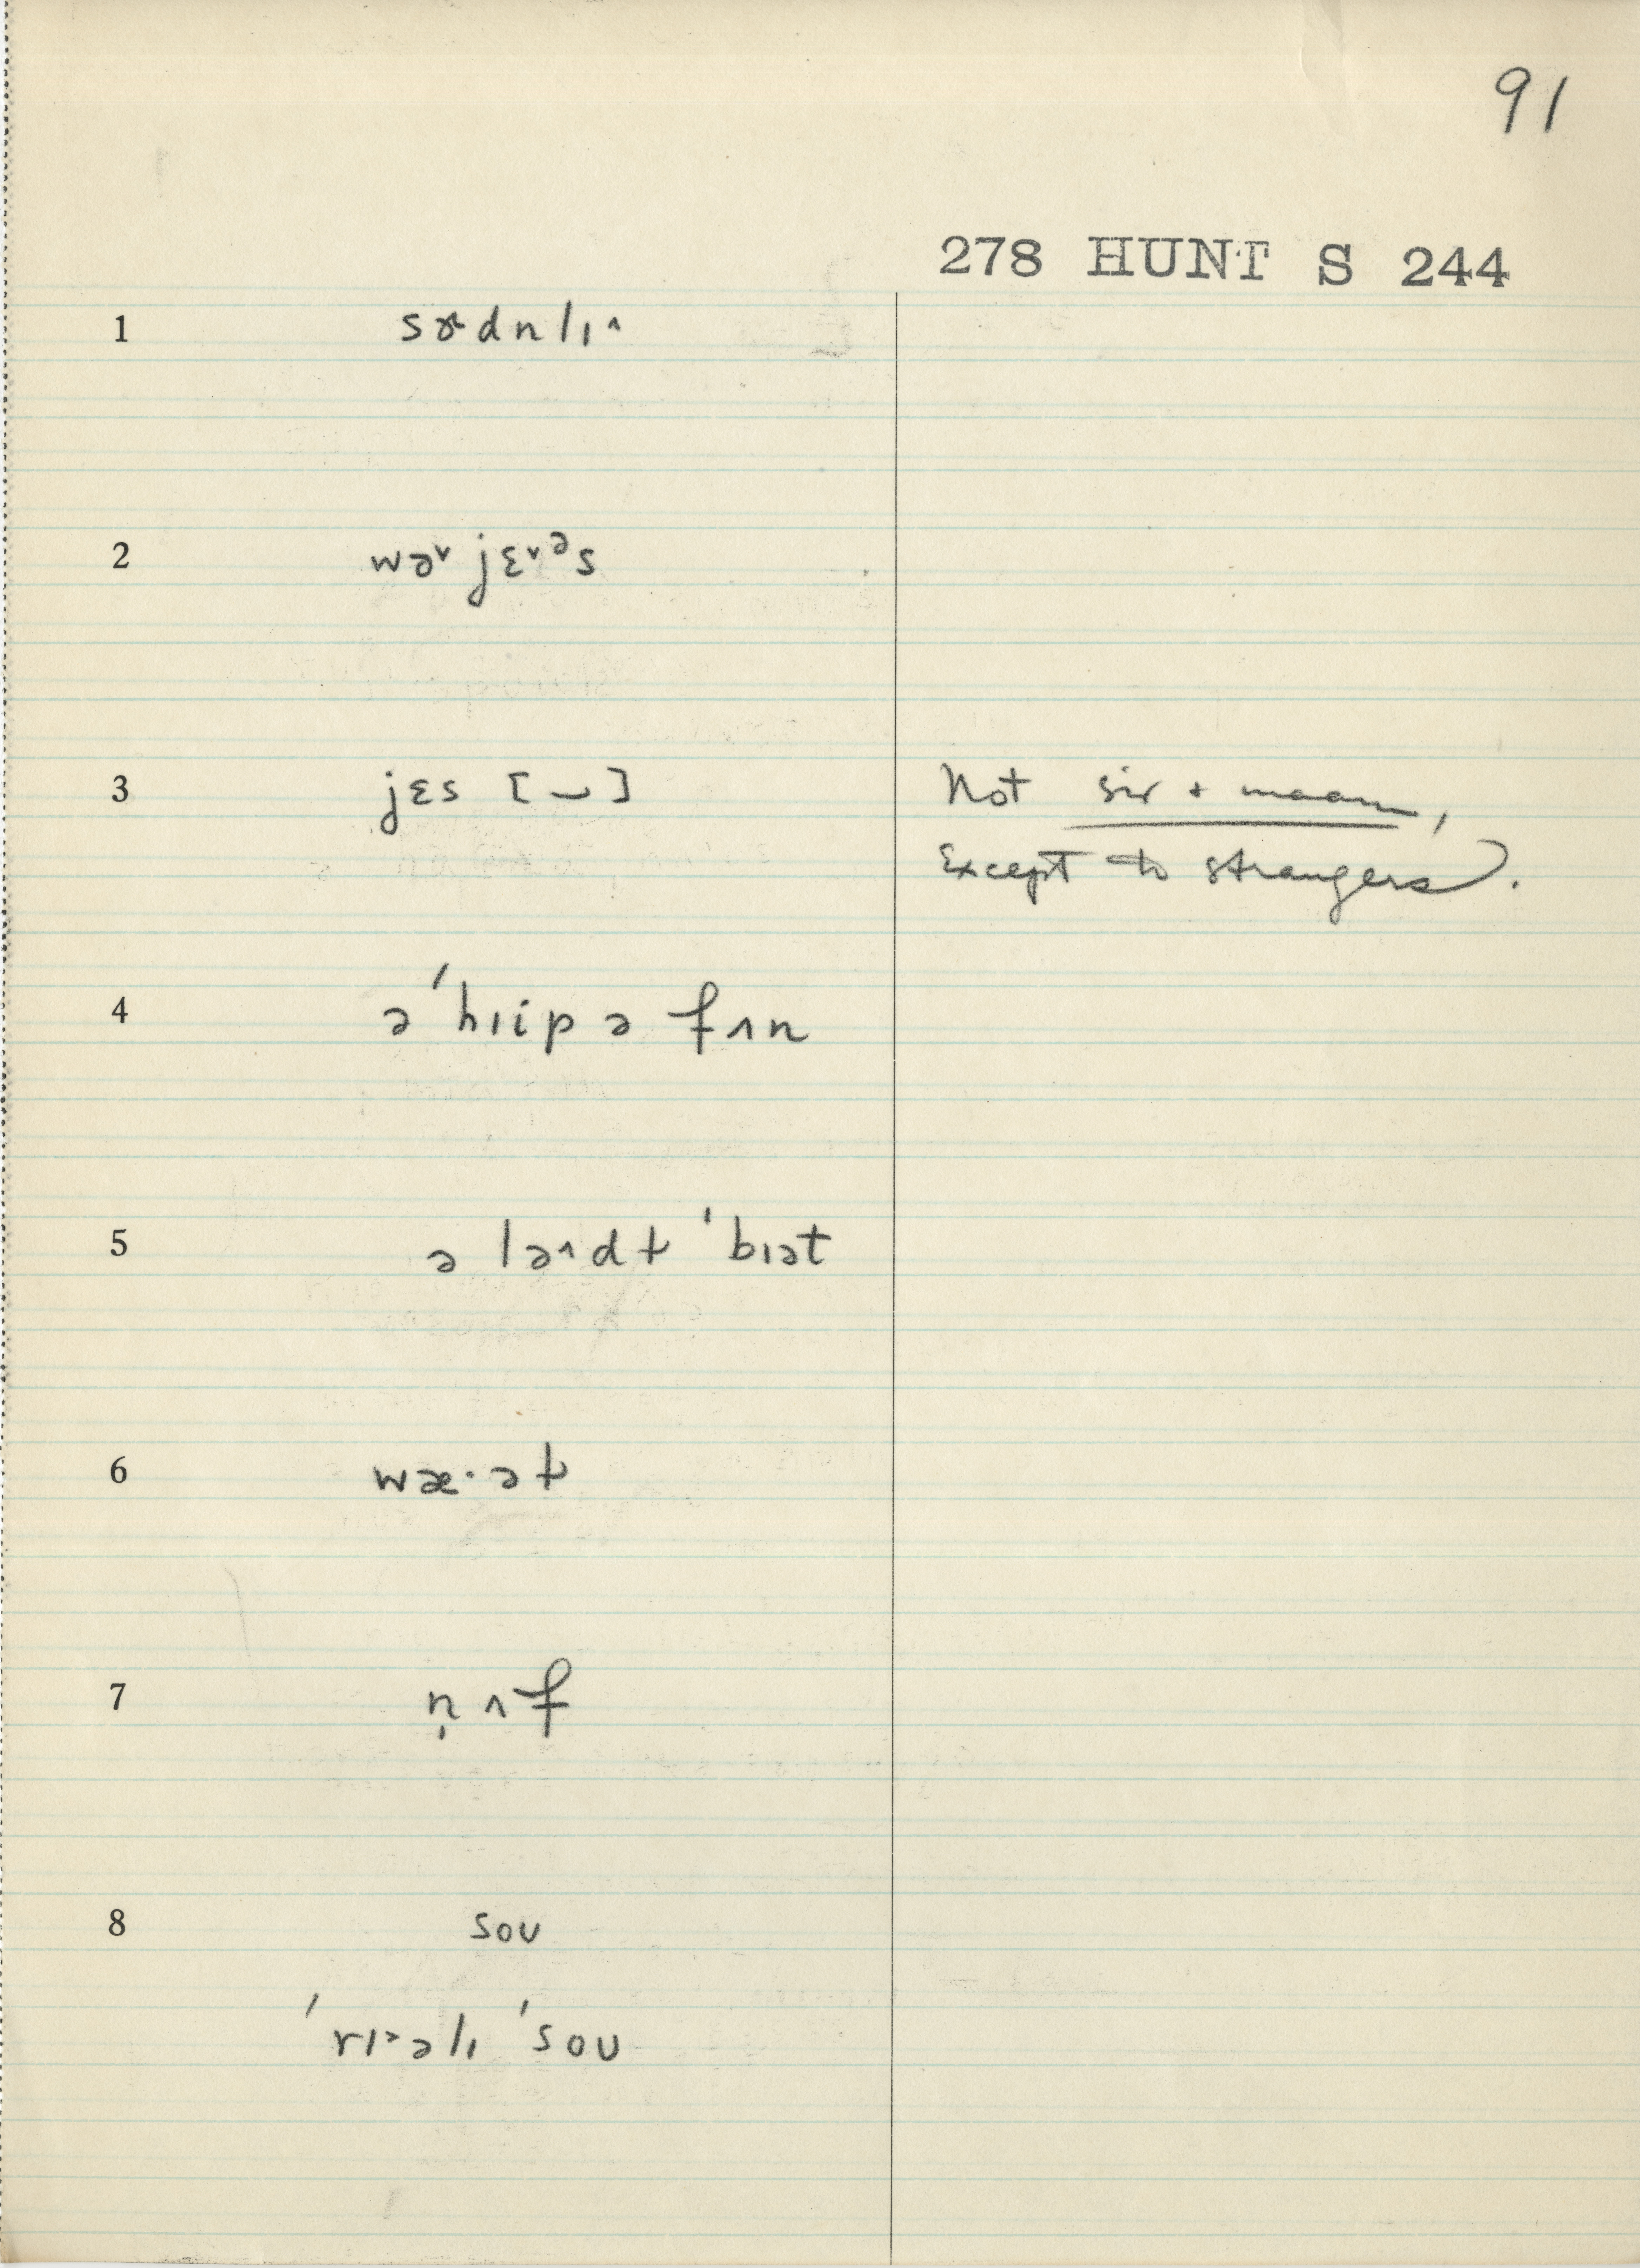 91
278 HUNT S 244
1 sɚdnlɪ^
2 wə˅ jɛ˅ᵊs
3 jɛs [‿] Not sir + maam,
Except to strangers.
4 ə ˈhɪip ə fʌn
5 ə lə^dɫ ˈbɪət
6 wæ·əɫ
7 n̩ʌf
8 soʊ
ˈrɪ˃əlɪ ˈsoʊ